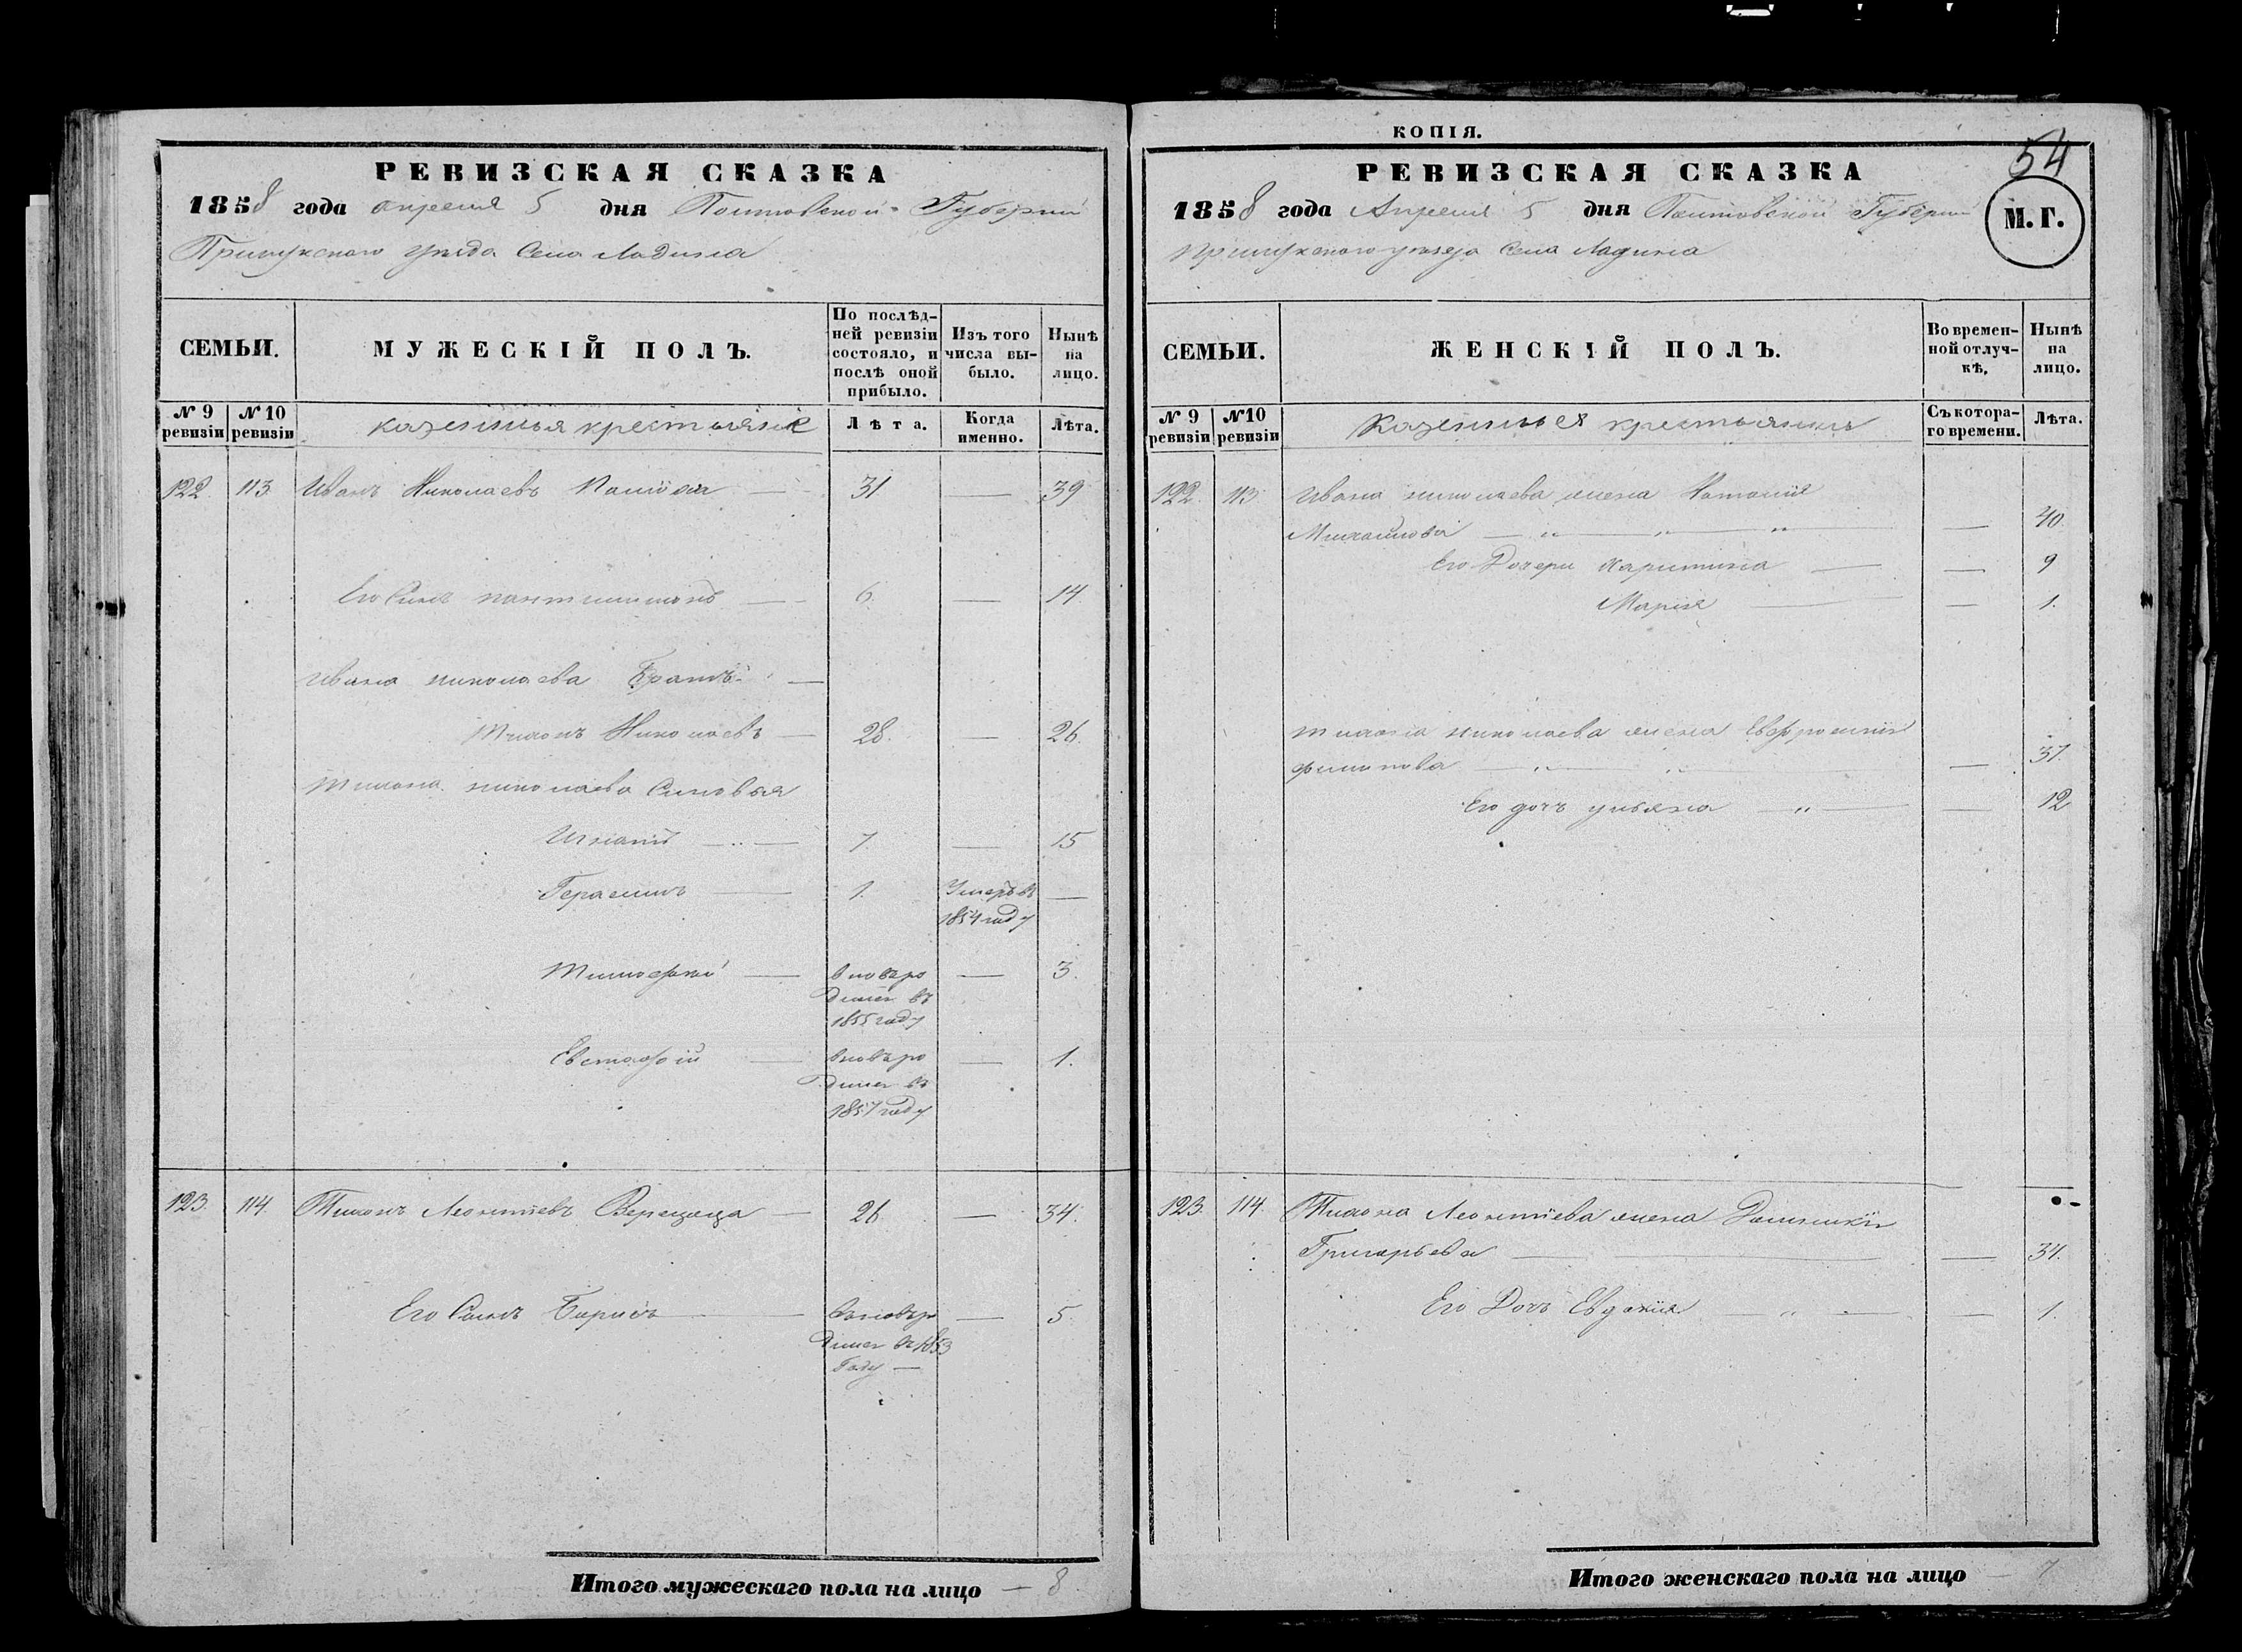 РЕВИЗСКАЯ СКАЗКА
1858 года Апреля 5 дня Полтавской Губерніи
Прилукского уезда Села Ладина
СЕМЬИ.
МУЖЕСКІЙ ПОЛЪ.
По послѣд-
ней ревизіи
состояло, и
послѣ оной
прибыло.
Изъ того
числа вы-
было.
Нынѣ
на
лицо.
№ 9
ревизіи
№ 10
ревизіи
казенныя крестьяне
Лѣта.
Когда
именно.
Лѣта.
122. 113. Иванъ Николаевъ 31 — 39
Его Сынъ 6. — 14
Ивана николаева Братъ —
Тихонъ Николаевъ — 28. — 26.
Тихона николаева Сыновья
Игнатъ — 7. — 15
Герасимъ — 1. Умеръ въ —
1854 году
Тимофей — вновъ ро — 3.
дился въ
1855 году
Евстафій — вновъ ро — 1.
дился въ
1857 году
123. 114. Тихонъ Леонтіевъ Верещага — 26. — 34.
Его Сынъ Борисъ — вновъ ро — 5
дился въ 1853
Году —
Итого мужескаго пола на лицо — 8
КОПІЯ.
54
РЕВИЗСКАЯ СКАЗКА
М. Г.
1858 года Апреля 5 дня Полтавской Губерніи
Прилукского уезда Села Ладина
СЕМЬИ.
ЖЕНСКІЙ ПОЛЪ.
Во времен-
ной отлуч-
кѣ.
Нынѣ
на
лицо.
№ 9
ревизіи
№ 10
ревизіи
Казенныя крестьянки
Съ котора-
го времени.
Лѣта.
122. 113. Ивана николаева жена Наталія
Михайлова — " — " — " — 40.
Его Дочери Харитина — — 9
Марія — — 1.
Тихона николаева жена Евфросинія
филипова — " — " — — 37.
Его дочъ ульяна " — — 12
123. 114. Тихона Леонтіева жена
Григорьева — — 34.
Его Дочъ Евдокия — " — — 1.
Итого женскаго пола на лицо — 7